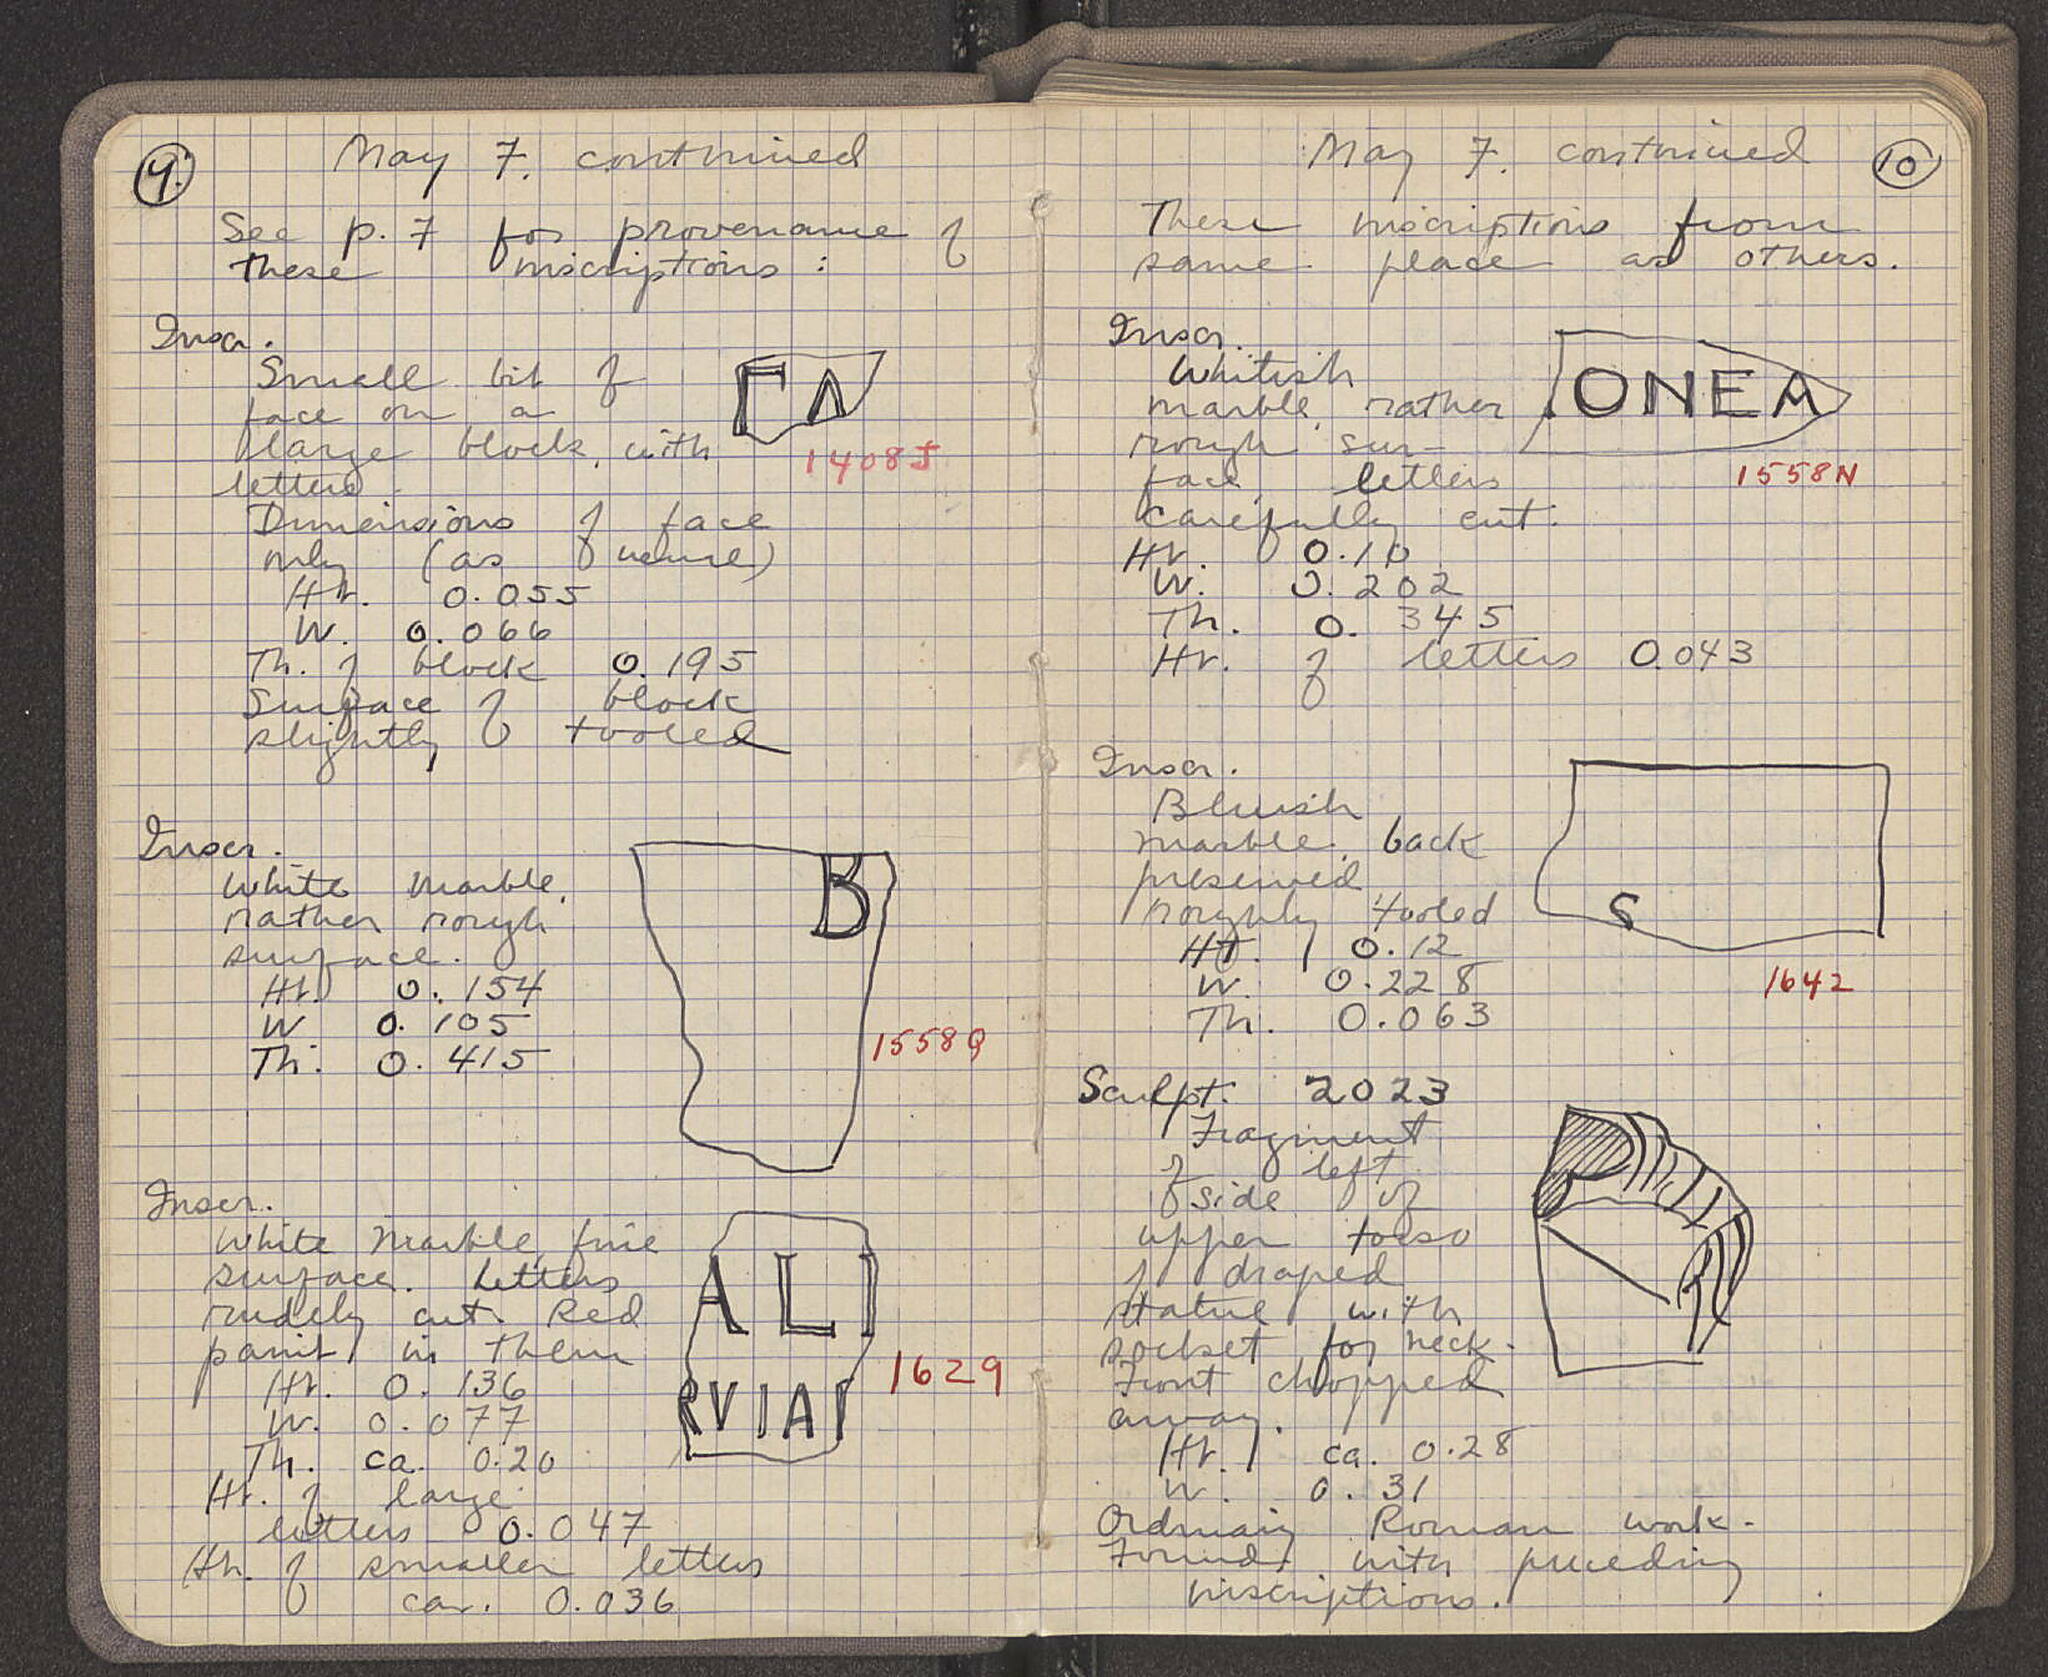 9.
May 7. continued
See p. 7 for provenance of
these inscriptions :
Inscr.
Small bit of
face on a
large block, with
letters.
ΓΛ
1408J
Dimensions of face
only (as f
Ht. 0.055
W. 0.066
Th. of block 0.195
Surface of block
slightly tooled
Inscr.
White marble,
rather rough
surface.
B
Ht. 0.154
W 0.105
Th. 0.415
1558Q
Inscr.
White marble, fine
surface. Letters
rudely cut. Red
paint in them
ALI
RVIAI
1629
Ht. 0.136
W. 0.077
Th. ca. 0.20
Ht. of large
letters 0.047
Ht. of smaller letters
ca. 0.036
10
May 7. continued
These inscriptions from
same place as others.
Inscr.
Whitish
marble, rather
rough sur-
face, letters
carefully cut.
ONEA
1558N
Ht. 0.10
W. 0.202
Th. 0.345
Ht. of letters 0.043
Inscr.
Bluish
marble, back
preserved
roughly tooled
S
Ht. 0.12
W. 0.228
Th. 0.063
1642
Sculpt. 2023
Fragment
of left
side of
upper torso
of draped
statue with
socket for neck.
Front chopped
away.
Ht. ca. 0.28
W. 0.31
Ordinary Roman work.
Found with preceding
inscriptions.